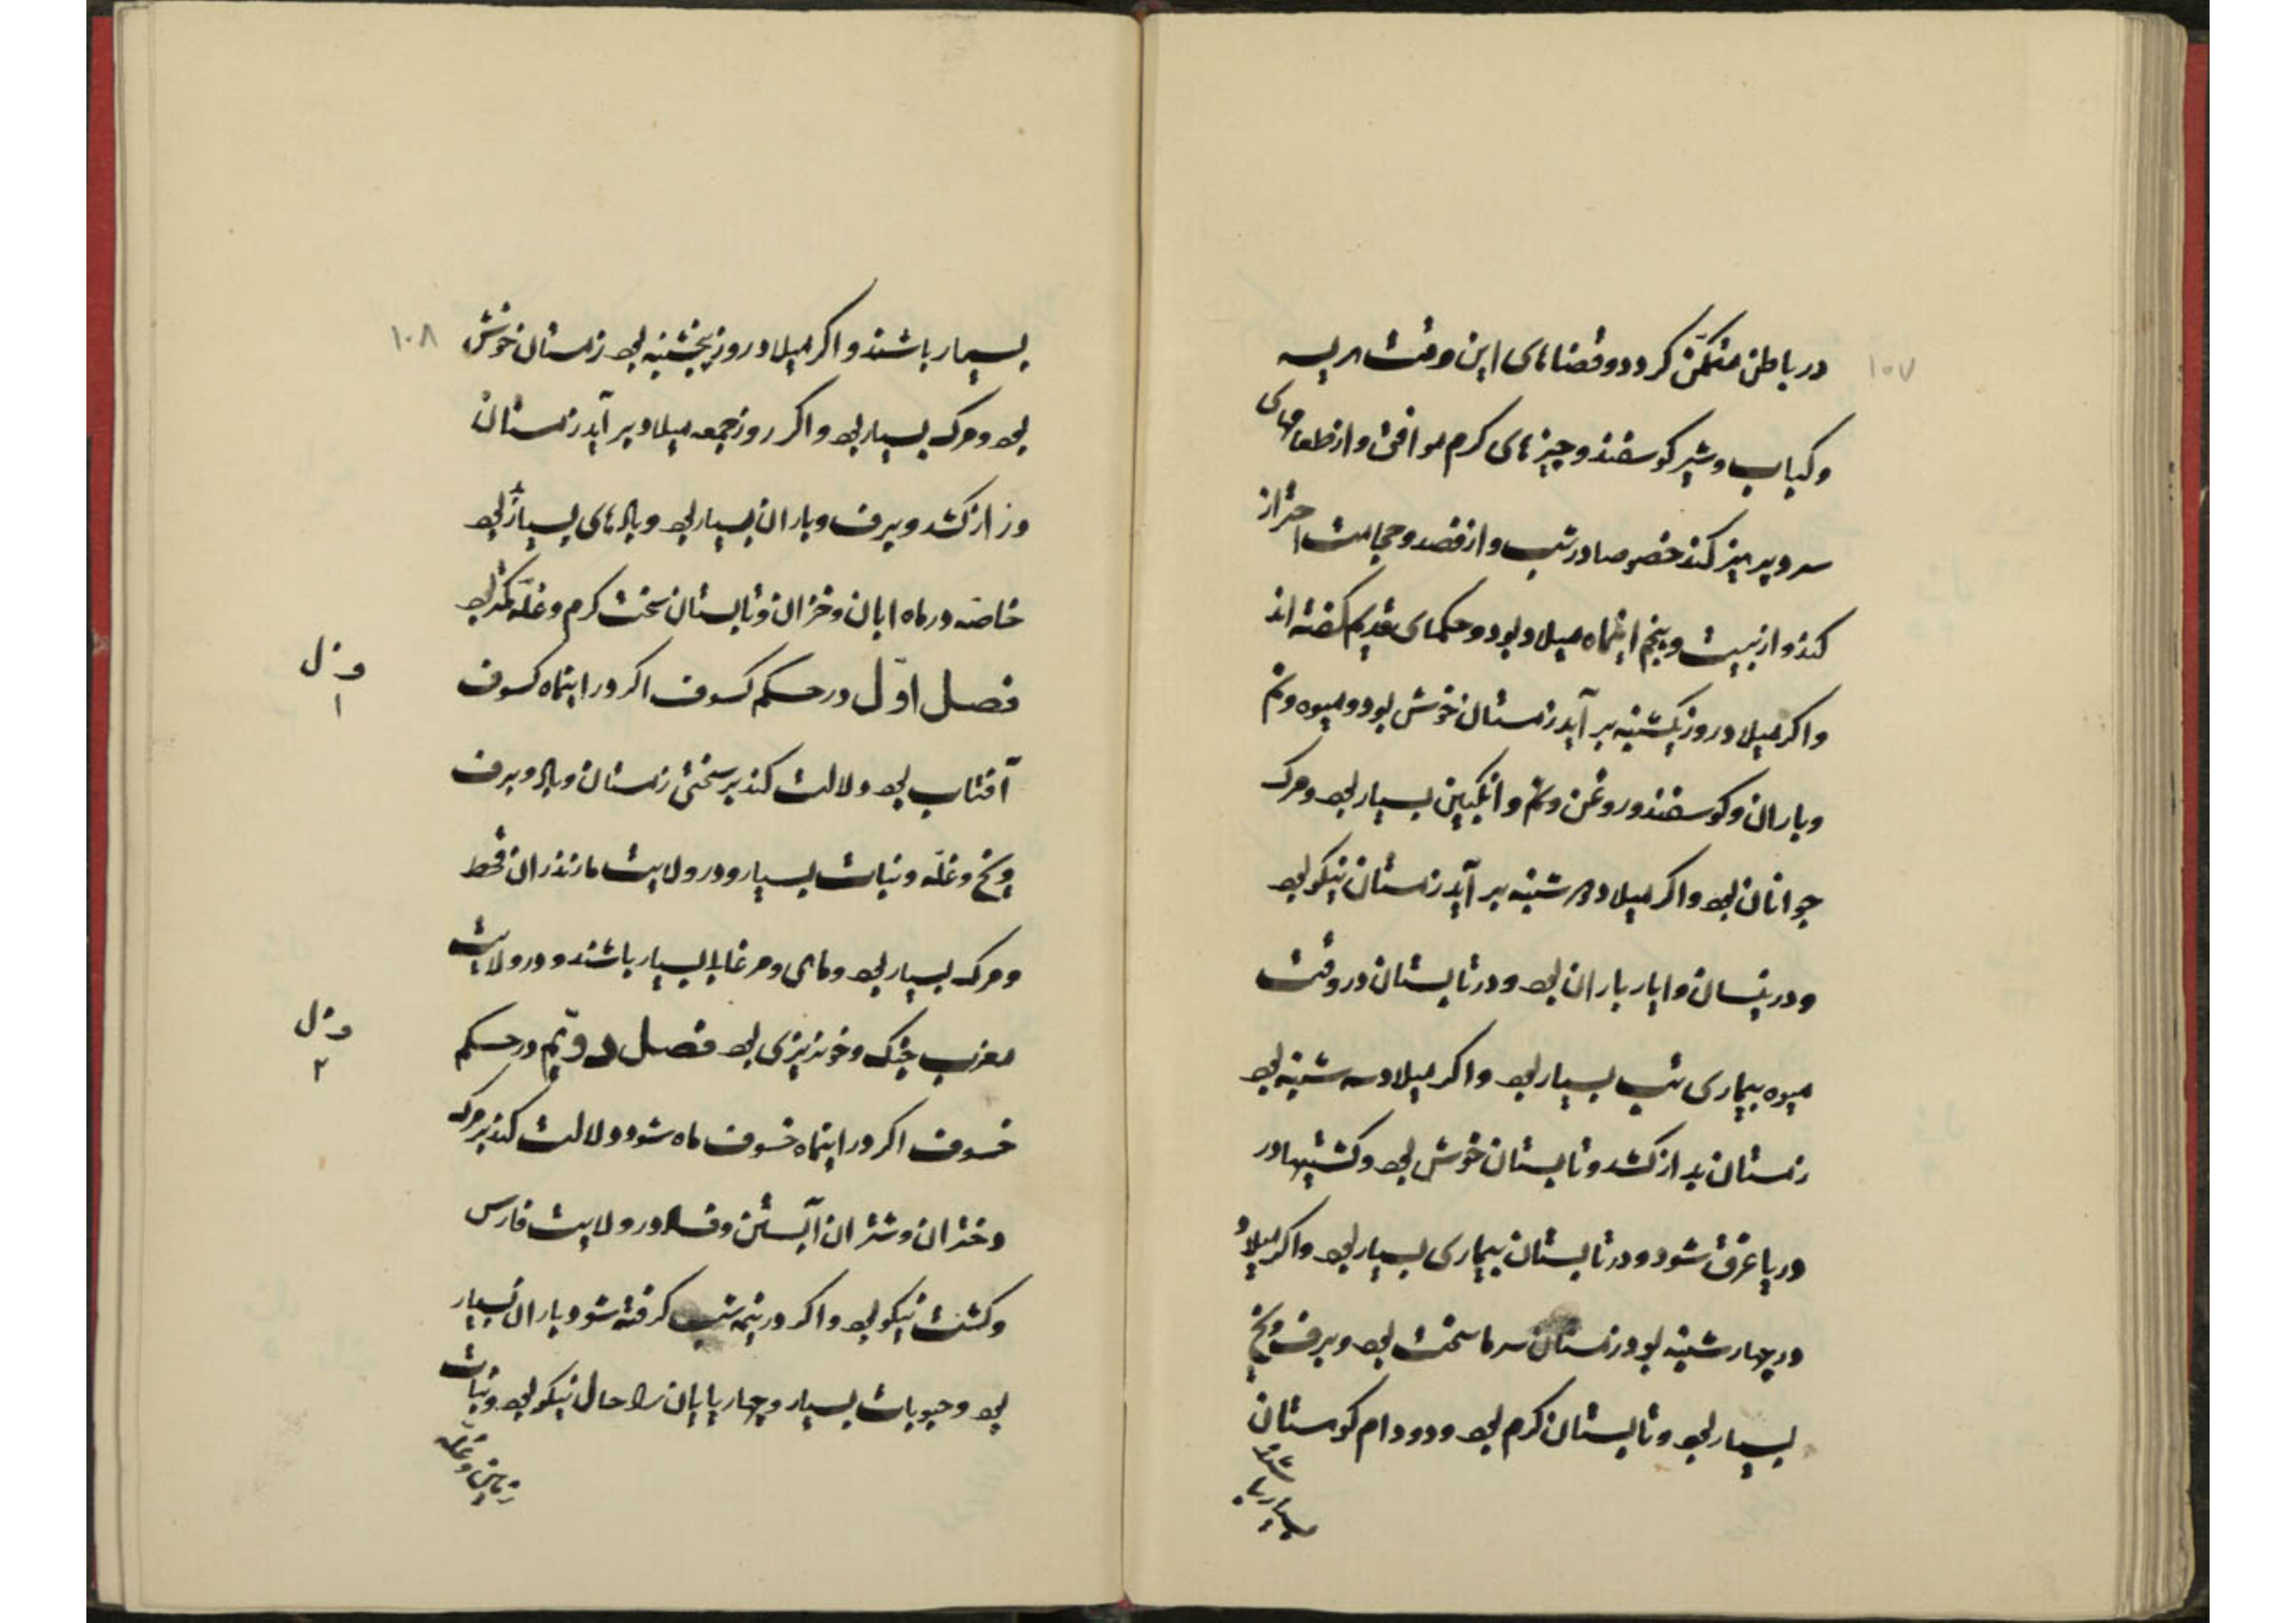 ۱۰۷
در باطن متمکّن کردد و قضاهای این وقت هریسه
و کباب و شیر کوسفند و چیزهای کرم موافق و از طعامهای
سرد پرهیز کند خصوصا در شب و از فصد و حجامت احتراز
کند و از بیست و پنجم اینماه میلاد بود و حکمای قدیم کفته اند
و اکر میلاد روز یکشنبه بر آید زمستان خوش بود و میوه و نم
و باران و کوسفند و روغن و نم و انکبین بسیار بود و مرک
جوانان بود و اکر میلاد دوشنبه بر آید زمستان نیکو بود
و در نیسان و ایار باران بود و در تابستان در وقت
میوه بیماری تب بسیار بود و اکر میلاد سه شنبه بود
زمستان بد از کشد و تابستان خوش بود و کشتیها در
دریا غرق شود و در تابستان بیماری بسیار بود و اکر میلاد
در چهارشنبه بود زمستان سرما سخت بود و برف و یخ
بسیار بود و تابستان کرم بود و دد و دام کوهستان
بسیار باشند
۱۰۸
بسیار باشند و اکر میلاد روز پنجشنبه بود زمستان خوش
بود و مرک بسیار بود و اکر روز جمعه میلاد بر آید زمستان
دراز کشد و برف و باران بسیار بود و بادهای بسیار بود
خاصه در ماه ابان و خزان و تابستان سخت کرم و غلّه کمتر بود
فصل اوّل در حکم کسوف اکر در اینماه کسوف
فصل ۱
آفتاب بود دلالت کند بر سختی زمستان و باد و برف
و یخ و غلّه و نبات بسیار و در ولایت مازندران قحط
و مرک بسیار بود و ماهی و مرغابی بسیار باشند و در ولایت
مغرب جنک و خونریزی بود فصل دویّم در حکم
فصل ۲
خسوف اکر در اینماه خسوف ماه شود دلالت کند بر مرک
دختران و شتران آبستن و فساد در ولایت فارس
و کشت نیکو بود و اکر در نیمه شب کرفته شود باران بسیار
بود و حبوبات بسیار و چهارپایان را حال نیکو بود و نبات
زمین و غلّه